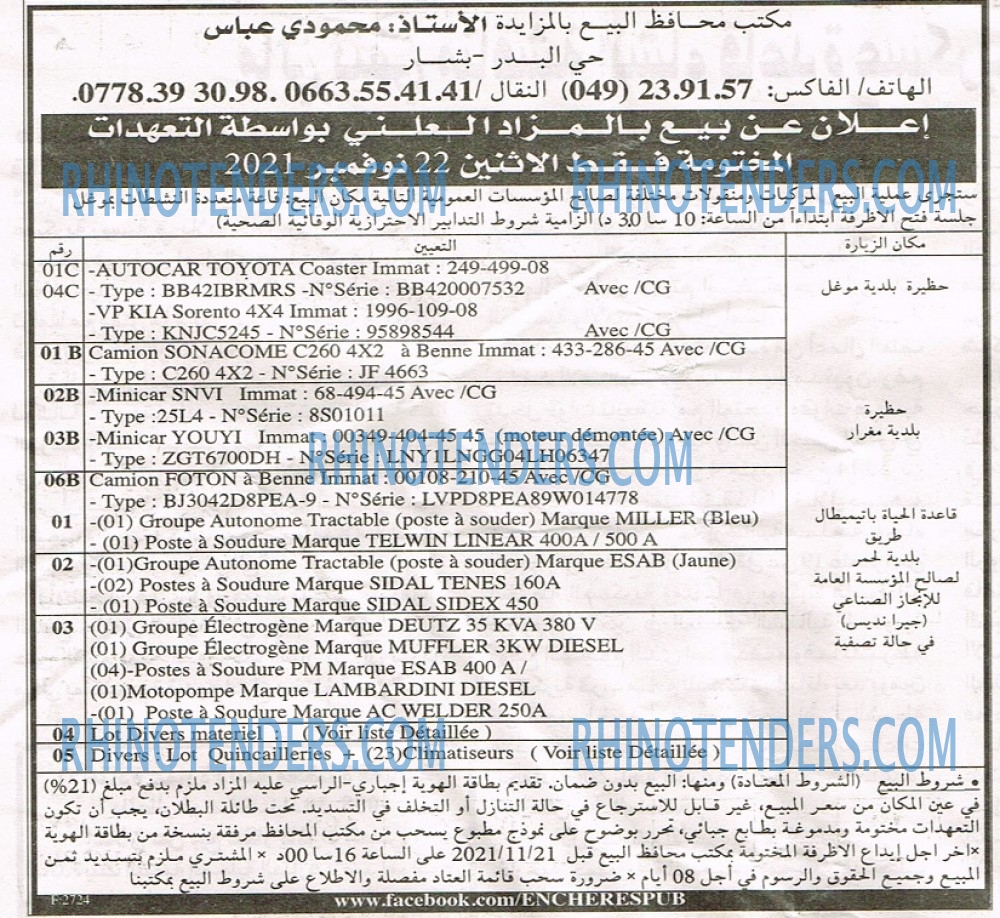 مكتب محافظ البيع بالمزايدة الأستاذ: محمودي عباس
حي البدر -بشار
الهاتف/ الفاكس: 23.91.57 (049) النقال /0663.55.41.41 .0778.39 30.98
إعلان عن بيع بالمزاد العلني بواسطة التعهدات
المختومة فقط الاثنين 22 نوفمبر 2021
ستجرى عملية البيع لمركبات ومنقولات مختلفة لصالح المؤسسات العمومية التالية مكان البيع: قاعة متعددة النشطات بموغل
جلسة فتح الاظرفة ابتداءا من الساعة: 10 سا 30 د) الزامية شروط التدابير الاحترازية الوقائية الصحية)
رقم التعيين مكان الزيارة
01C -AUTOCAR TOYOTA Coaster Immat : 249-499-08
04C - Type : BB42IBRMRS -N°Série : BB420007532 Avec /CG حظيرة بلدية موغل
-VP KIA Sorento 4X4 Immat : 1996-109-08
- Type : KNJC5245 - N°Série : 95898544 Avec /CG
01 B Camion SONACOME C260 4X2 à Benne Immat : 433-286-45 Avec /CG
- Type : C260 4X2 - N°Série : JF 4663
02B -Minicar SNVI Immat : 68-494-45 Avec /CG
- Type :25L4 - N°Série : 8S01011 حظيرة
03B -Minicar YOUYI Immat : 00349-404-45-45 (moteur démontée) Avec /CG بلدية مغرار
- Type : ZGT6700DH - N°Série : LNY1LNGG04LH06347
06B Camion FOTON à Benne Immat : 00108-210-45 Avec /CG
- Type : BJ3042D8PEA-9 - N°Série : LVPD8PEA89W014778
01 -(01) Groupe Autonome Tractable (poste à souder) Marque MILLER (Bleu) قاعدة الحياة باتيميطال
- (01) Poste à Soudure Marque TELWIN LINEAR 400A / 500 A طريق
02 -(01)Groupe Autonome Tractable (poste à souder) Marque ESAB (Jaune) بلدية لحمر
- (02) Postes à Soudure Marque SIDAL TENES 160A لصالح المؤسسة العامة
- (01) Poste à Soudure Marque SIDAL SIDEX 450 للإنجاز الصناعي
03 (01) Groupe Électrogène Marque DEUTZ 35 KVA 380 V (جيرا نديس)
(01) Groupe Électrogène Marque MUFFLER 3KW DIESEL في حالة تصفية
(04)-Postes à Soudure PM Marque ESAB 400 A /
(01)Motopompe Marque LAMBARDINI DIESEL
-(01) Poste à Soudure Marque AC WELDER 250A
04 Lot Divers materiel ( Voir liste Détaillée )
05 Divers : Lot Quincailleries + (23)Climatiseurs ( Voir liste Détaillée )
• شروط البيع (الشروط المعتادة) ومنها: البيع بدون ضمان. تقديم بطاقة الهوية إجباري-الراسي عليه المزاد ملزم بدفع مبلغ (21%)
في عين المكان من سعر المبيع، غير قابل للاسترجاع في حالة التنازل أو التخلف في التسديد. تحت طائلة البطلان، يجب أن تكون
التعهدات مختومة ومدموغة بطابع جبائي، تحرر بوضوح على نموذج مطبوع يسحب من مكتب المحافظ مرفقة بنسخة من بطاقة الهوية
×اخر اجل إيداع الاظرفة المختومة بمكتب محافظ البيع قبل 2021/11/21 على الساعة 16سا 00د × المشتري ملزم بتسديد ثمن
المبيع وجميع الحقوق والرسوم في أجل 08 أيام × ضرورة سحب قائمة العتاد مفصلة والاطلاع على شروط البيع بمكتبنا
F-2724 www.facebook.com/ENCHERESPUB
RHINOTENDERS.COM RHINOTENDERS.COM
RHINOTENDERS.COM
RHINOTENDERS.COM RHINOTENDERS.COM